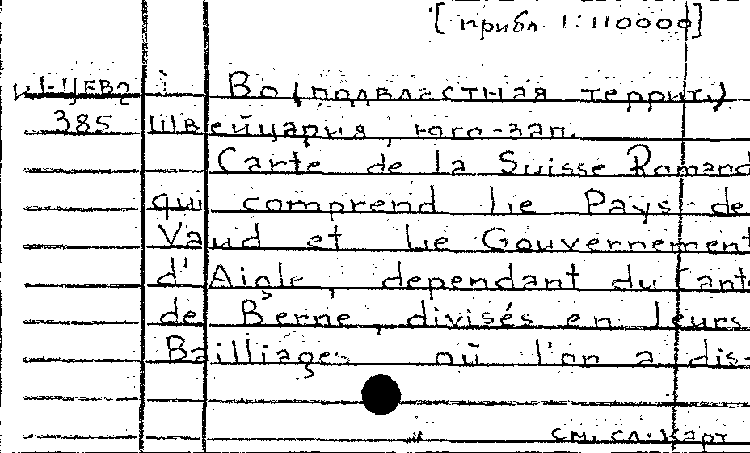 [прибл 1:110000]
Во (подвластная террит.)
385 Швейцария, юго-зап.
Carte de la Suisse Romand
qui comprend Le Pays de
Vaud et Le Gouvernement
d'Aigle, dependant du Cant
de Berne, divisés en leurs
Bailliages où l'on a dis-
см. сл. карт